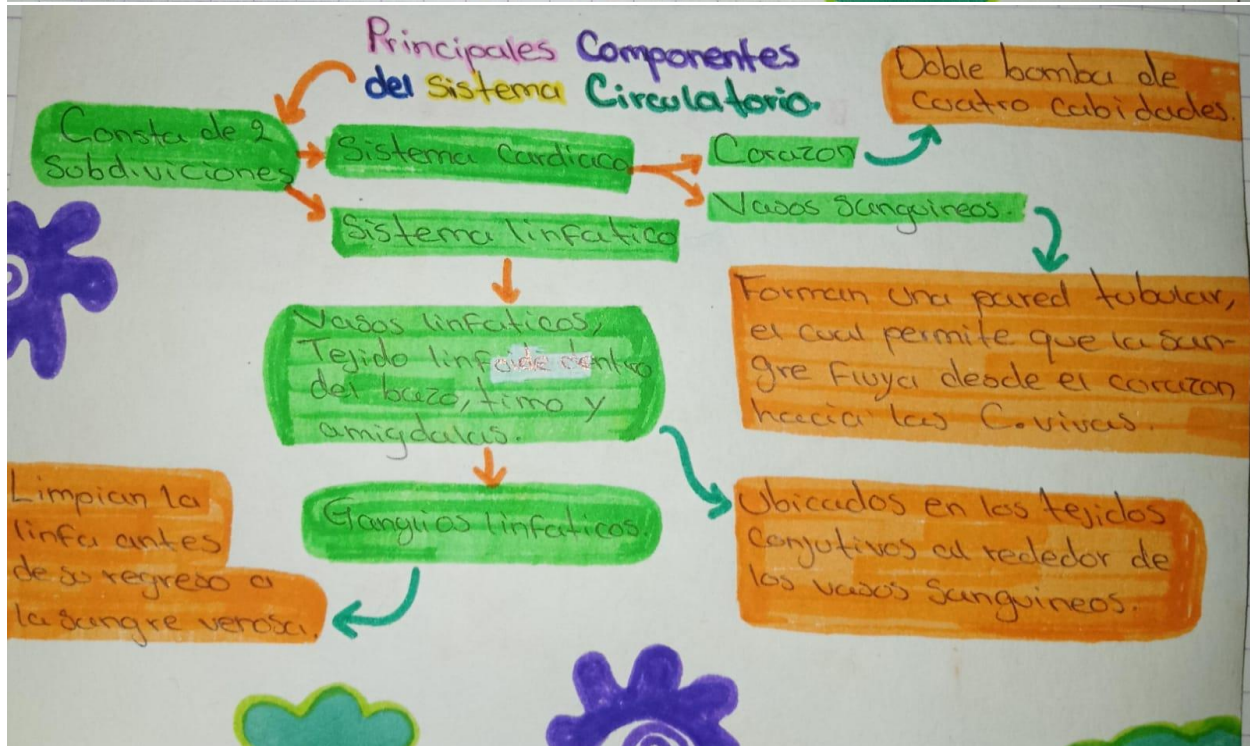 Principales Componentes
del Sistema Circulatorio.
Consta de 2
Subdiviciones
Sistema Cardiaco
Corazon
Doble bomba de
cuatro cabidades.
Vasos Sanguineos.
Forman una pared tubular,
el cual permite que la san-
gre fluya desde el corazon
hacia las C. vivas.
Sistema linfatico
Vasos linfaticos,
Tejido linfoide dentro
del bazo, timo y
amigdalas.
Ubicados en los tejidos
Conjutivos al rededor de
los vasos Sanguineos.
Ganglios linfaticos.
Limpian la
linfa antes
de su regreso a
la sangre venosa.